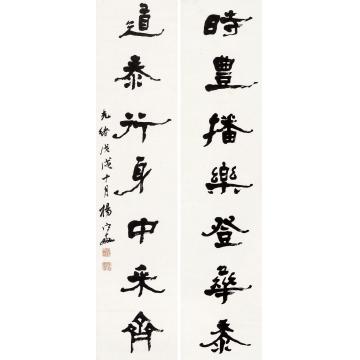 時豐播樂登華黍
道泰行身中采齊
光緒戊戌十月楊守敬